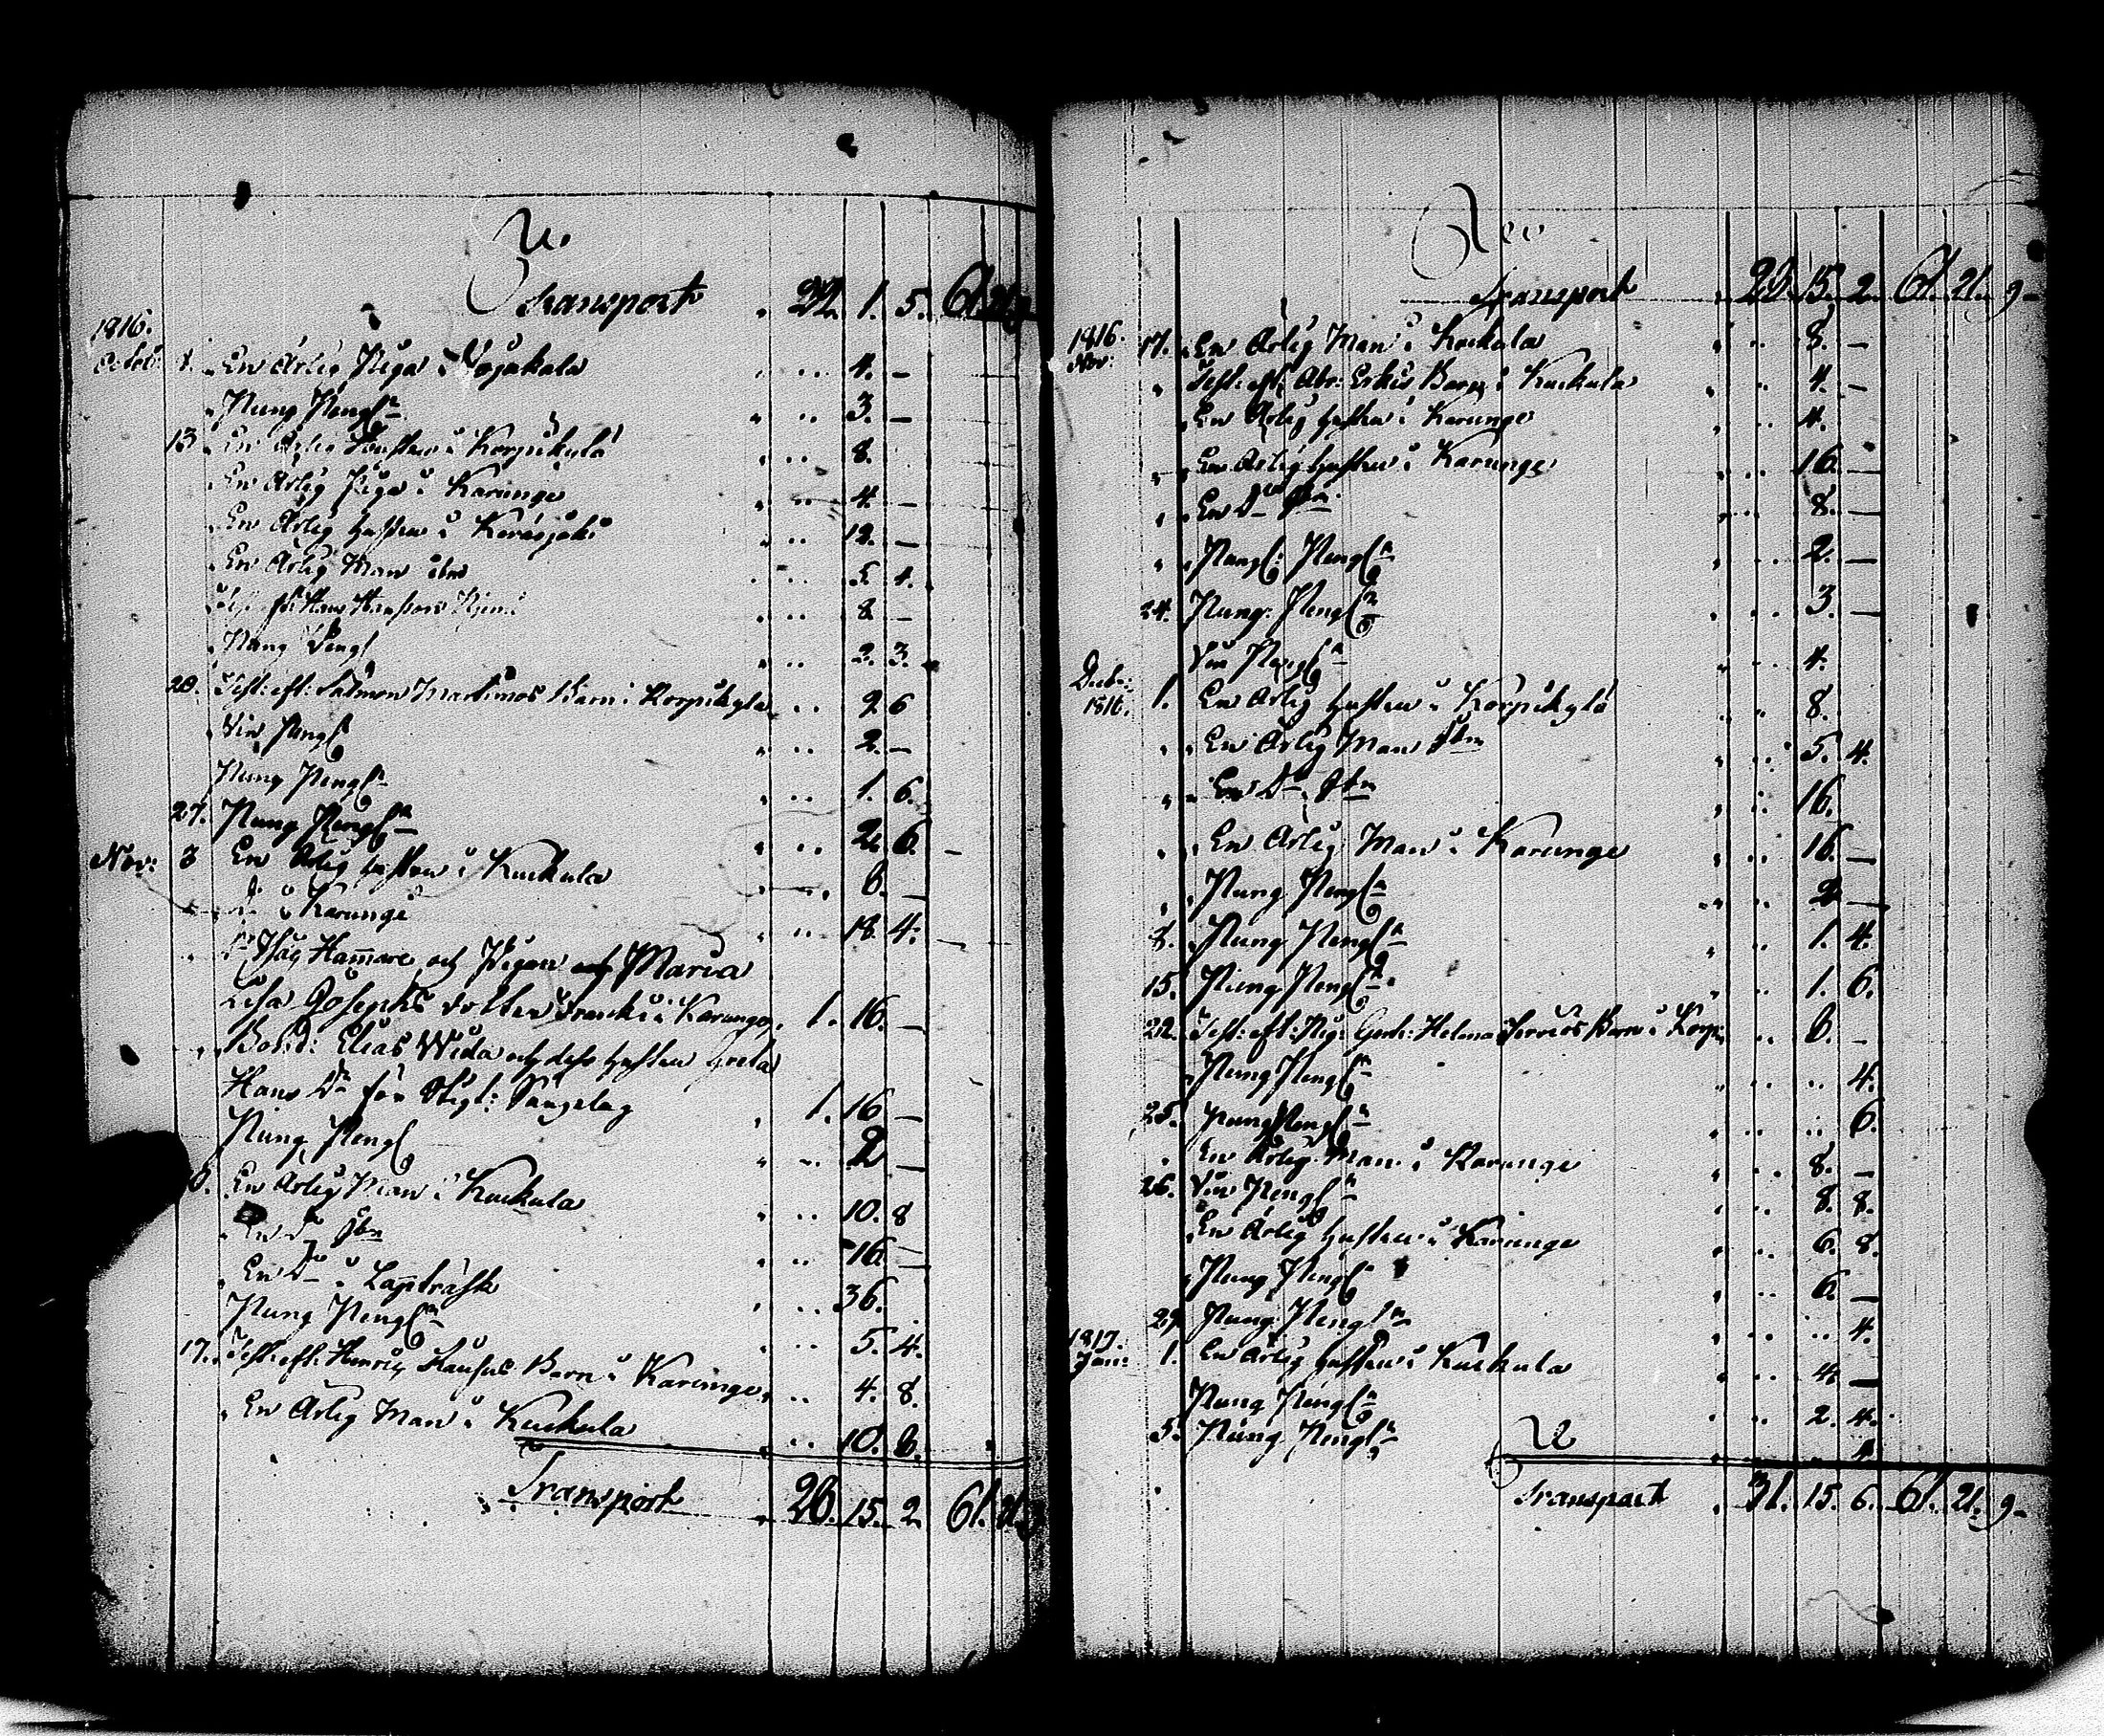 Transport 22. 1. 5. 61. 21. 9
1816.
Octob: En Ärlig Piga i Vojakala 4. —
Pung Peng 3. —
13. En Ärlig Hustru i Korpikylä 8.
En Ärlig Piga i Karunge 4. —
En Ärlig Hustru i Keräsjoki 12. —
En Ärlig Man ibm 5. 4.
8 —
Pung Peng 2. 3.
20. Test: eft: Salmon Martimos Barn i Korpikylä 2 6
Vin Peng 2. —
Pung Peng 1. 6.
27. Pung Peng 2. 6.
Nov: 3 En Ärlig Hustru i Kuckula 6. —
Dº i Karungi 18. 4.
Hammare och Pigan Maria
Lisa Josephs dotter Franki i Karunge 1. 16. —
Bond: Elias Wida och dess Hustru Greta
Hans Dr för Stigt: Sängelag 1. 16 —
Pung Peng 2 —
10. En Ärlig Man i Kuckula 10. 8
En Dº Ibm 16. —
En Dº i Lappträsk 36.
Pung Peng 5. 4.
17. Test: eft: Henric Barn i Karunge 4. 8.
En Ärlig Man i Kuckula 10. 8.
Transport 26. 15. 2 61. 21. 9
Transport 26. 15. 2. 61. 21. 9
1816.
Nov: 17. En Ärlig Man i Kuckula 8. —
Test: eft: Abr: Erkis Barn i Kuckula 4. —
En Ärlig Hustru i Karunge 4.
En Ärlig Hustru i Karunge 16. —
En Dº Ibm 8. —
Pung: Peng 2. —
24. Pung: Peng 3. —
Vin Peng 4.
Decbr: 1816. 1. En Ärlig Hustru i Korpikylä 8.
En Ärlig Man Ibm 5. 4.
En Dº Ibm 16.
En Ärlig Man i Karunge 16. —
Pung Peng 2 —
8. Pung Peng 1. 4.
15. Pung Peng 1. 6.
22. Test: eft: Helena Barn i Korp: 6. —
Pung Peng 4.
25. Pung Peng 6.
En Ärlig Man i Karunge 8. —
26. Vin Peng 8. 8.
En Ärlig Hustru i Karunge 6. 8.
Pung Peng 6. —
29. Pung Peng 4.
1817.
Jan: 1. En Ärlig Hustru i Kuckula 4 —
Pung Peng 2. 4.
5. Pung Peng 4
Transport 31. 15. 6. 61. 21. 9